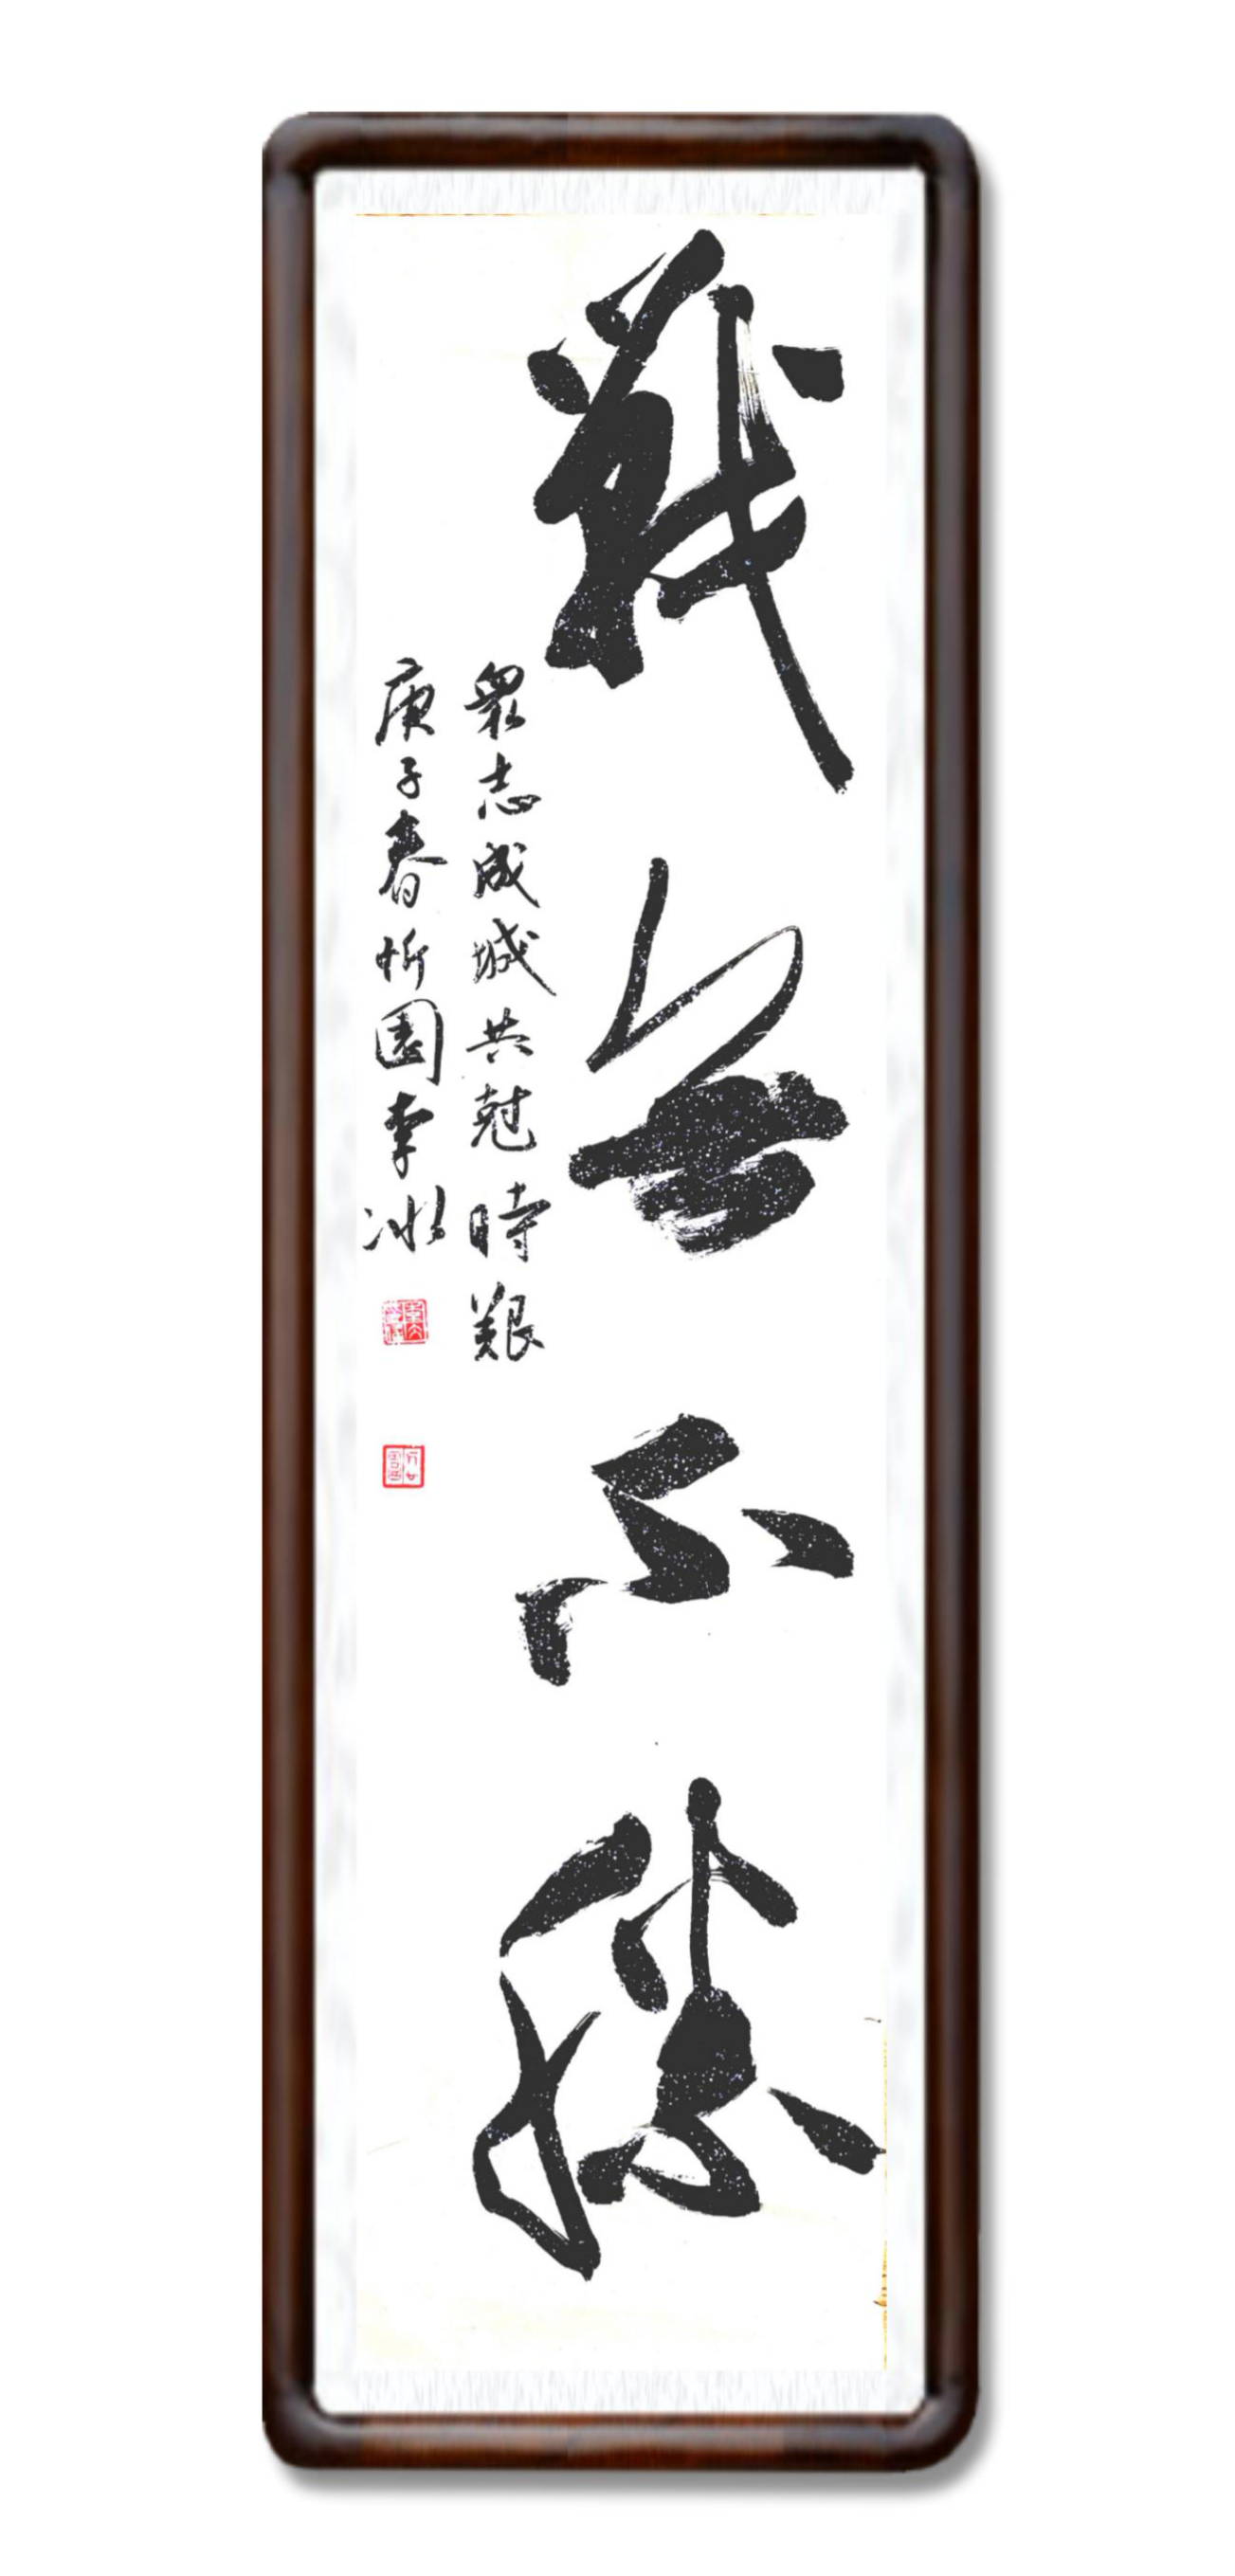 戰無不勝
眾志成城共尅時艱
庚子春忻園李冰